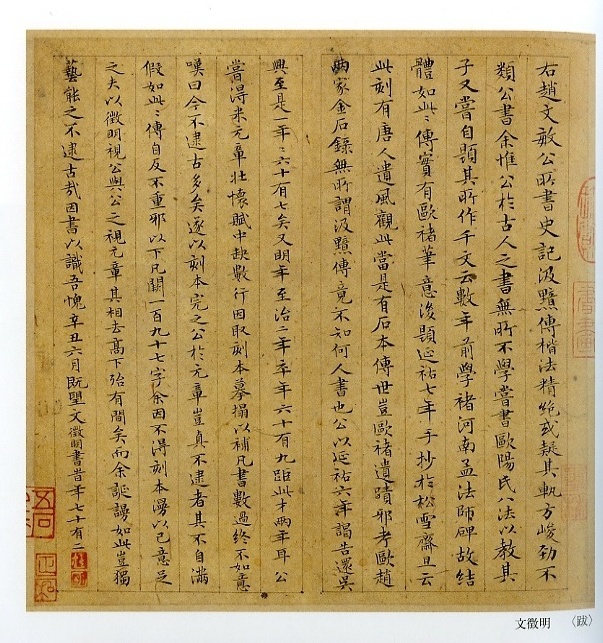 右趙文敏公所書史記汲黯傳楷法精絕或疑其軌方峻勁不
類公書余惟公於古人之書無所不學嘗書歐陽氏八法以教其
子又嘗自題其所作千文云數年前學褚河南孟法師碑故結
體如此此傳實有歐褚筆意後題延祐七年手抄於松雪齋且云
此刻有唐人遺風觀此當是有石本傳世豈歐褚遺蹟邪考歐趙
兩家金石錄無所謂汲黯傳竟不知何人書也公以延祐六年謁告還吳
興至是一年年六十有七矣又明年至治二年卒年六十有九距此才兩年耳公
嘗得米元章壯懷賦中缺數行因取刻本摹搨以補凡書數過終不如意
嘆曰今不逮古多矣遂以刻本完之公於元章豈真不逮者其不自滿
假如此此傳自反不重邪以下凡闕一百九十七字余因不得刻本漫以己意足
之夫以徵明視公與公之視元章其相去高下殆有間矣而余誕謾如此豈獨
藝能之不逮古哉因書以識吾愧辛丑六月既望文徵明書旹年七十有二
文徵明 〈跋〉